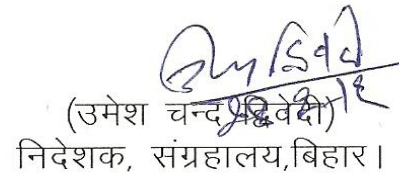 (उमेश चन्द्र द्विवेदी)
निदेशक, संग्रहालय,बिहार।